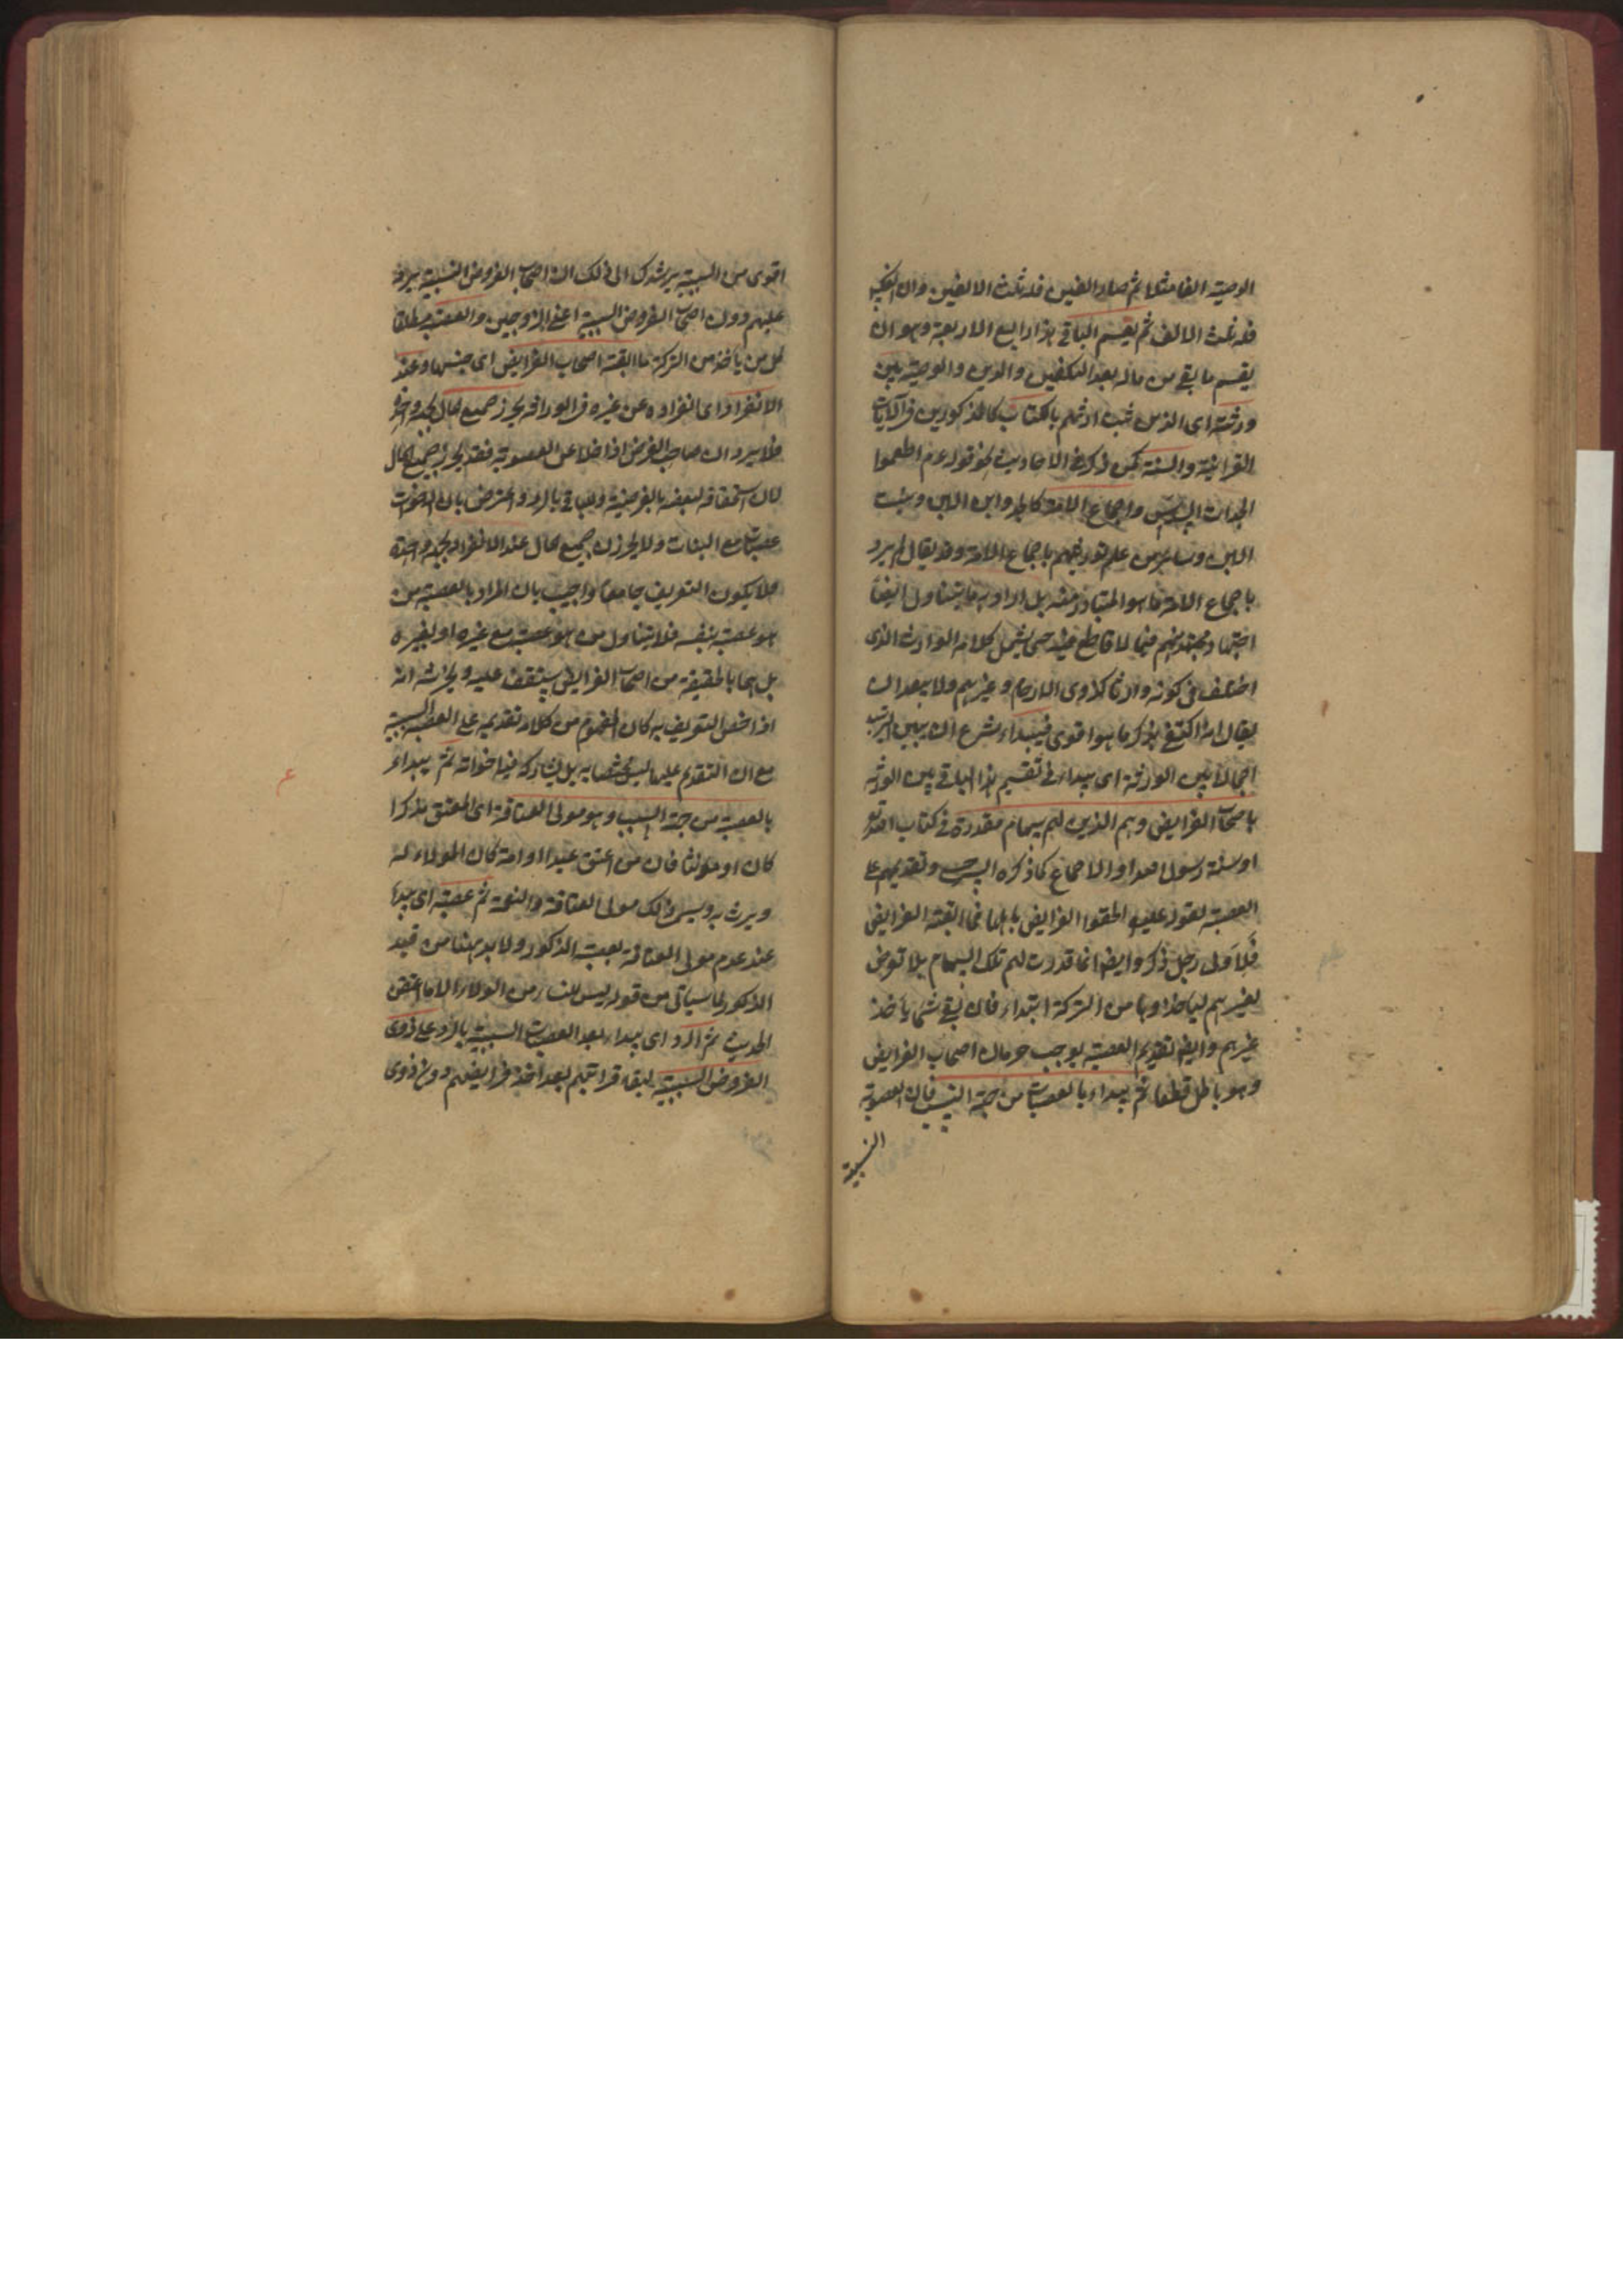 الوصية الفا مثلا ثم صار الفين فله ثلث الالفين وان انعكس
فله ثلث الالف ثم يقسم الباقي هذا رابع الاربعة وهو ان
يقسم ما بقي من ماله بعد التكفين والدين والوصية بين
ورثته اى الذين ثبت ارثهم بالكتاب كالمذكورين في الآيات
القرانية والسنة كمن ذكر في الاحاديث نحو قوله عم اطعموا
الجدات السدس واجماع الامة كالجد وابن الابن وبنت
الابن وسائر من علم توريثهم باجماع الامة وقد يقال لم يرد
باجماع الامة ما هو المتبادر منه بل اراد به ما يتناول ايضا
اجتهاد مجتهد منهم فيما لا قاطع فيه حتى يشمل كلامه الوارث الذى
اختلف في كونه وارثا كذوى الارحام وغيرهم ولا يبعد ان
يقال انه اكتفى بذكر ما هو اقوى فيبداء شرع ان يبين الترتيب
اجمالا بين الورثة اى يبداء في تقسيم هذا الباقي بين الورثة
باصحاب الفرايض وهم الذين لهم سهام مقدرة في كتاب الله تع
او سنة رسوله او الاجماع كما ذكره السرخسي وتقديمهم على
العصبة لقوله عليه الحقوا الفرايض باهلها فما ابقته الفرايض
فلاولى رجل ذكر وايضا انما قدرت لهم تلك السهام بلا تعرض
لغيرهم لياخذوها من التركة ابتداء فان بقي شئ ياخذ
غيرهم وايضا تقديم العصبة يوجب حرمان اصحاب الفرايض
وهو باطل قطعا ثم يبداء بالعصبات من جهة النسب فان العصوبة
النسبية
اقوى من السببية يرشدك الى ذلك ان اصحاب الفروض النسبية يرد
عليهم دون اصحاب الفروض السببية اعنى الزوجين والعصبة مطلقا
كل من ياخذ من التركة ما ابقته اصحاب الفرايض اى جنسها وعند
الانفراد اى انفراده عن غيره في الوراثة يحرز جميع المال بجهة واحدة
فلا يرد ان صاحب الفرض اذا خلا عن العصوبة فقد يحرز جميع المال
لان استحقاقه لبعضه بالفرضية وللباقي بالرد واعترض بان الاخوات
عصبات مع البنات ولا يحرزن جميع المال عند الانفراد بجهة واحدة
فلا يكون التعريف جامعا واجيب بان المراد بالعصبة من
هو عصبة بنفسه فلا يتناول من هو عصبة مع غيره او لغيره
بل هما بالحقيقة من اصحاب الفرايض ستقف عليه ويخدشه انه
اذا اختص التعريف به كان المفهوم من كلامه تقديمه على العصبة السببية
مع ان التقدم عليها ليس مختصا به بل يشاركه فيها اخواته ثم يبداء
بالعصبة من جهة السبب وهو مولى العتاقة اى المعتق مذكرا
كان او مؤنثا فان من اعتق عبدا او امة كان الولاء له
ويرث به ويسمى ذلك مولى العتاقة والنعمة ثم عصبته اى يبداء
عند عدم مولى العتاقة بعصبته الذكور ولا بد ههنا من قيد
الذكور لما سياتى من قوله ليس للنساء من الولاء الا ما اعتقن
الحديث ثم الرد اى يبداء بعد العصبات السببية بالرد على ذوى
الفروض النسبية لبقاء قرابتهم بعد اخذ فرايضهم دون ذوى
ع